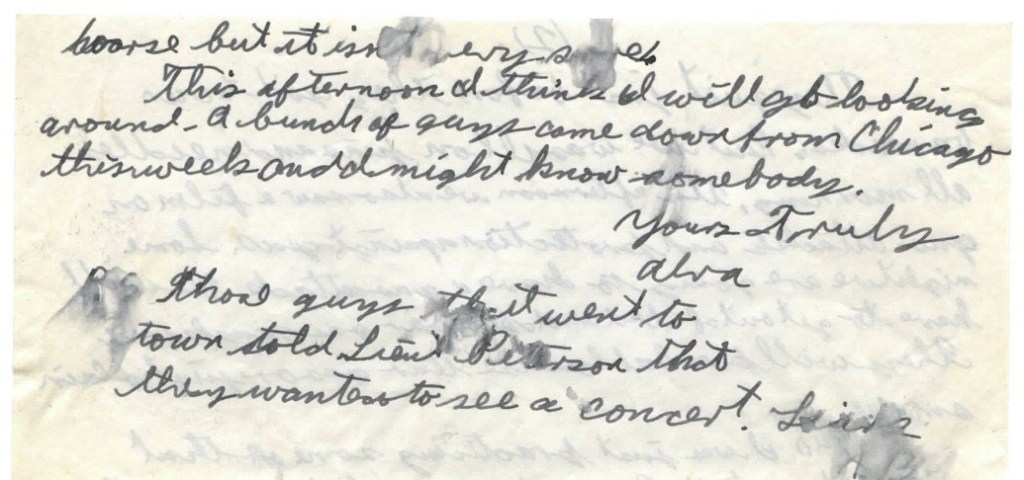 hoarse but it isn't very
This afternoon I think I will go looking
around. A bunch of guys came down from Chicago
this week and I might know somebody.
Yours Truly
Alva
P.S. Those guys that went to
town told Lieut Peterson that
they wanted to see a concert. Liars